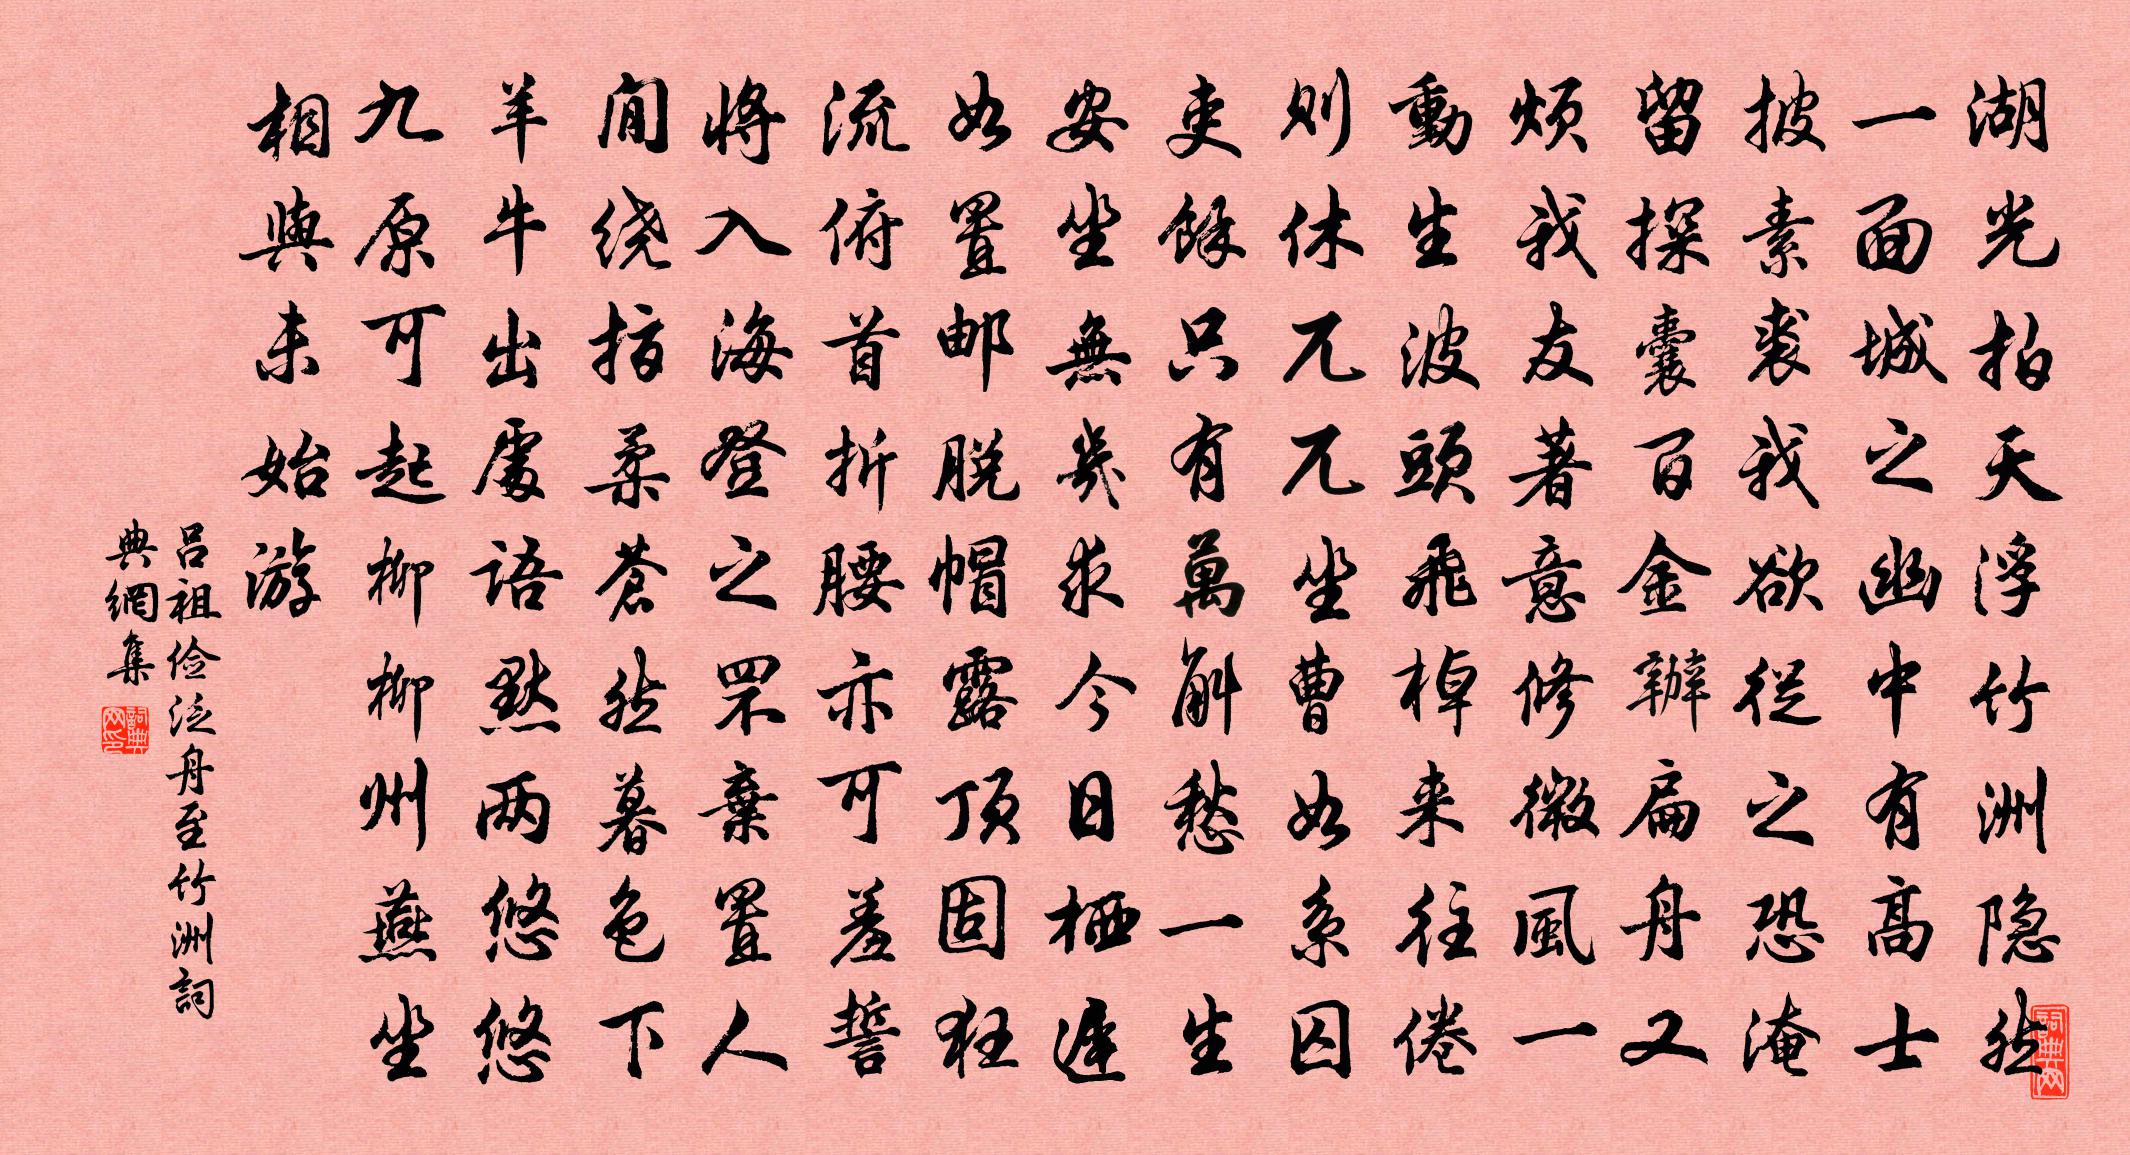 湖光拍天浮竹洲隐然
一面城之幽中有高士
披素裘我欲從之恐淹
留探囊百金辦扁舟又
烦我友著意修微風一
動生波頭飛棹来往倦
则休兀兀坐曹如系囚
吏餘只有萬斛愁一生
安坐無幾求今日栖遲
如置邮脱帽露顶固狂
流俯首折腰亦可羞誓
将入海登之罘棄置人
间绕指柔蒼然暮色下
羊牛出處語默两悠悠
九原可起柳柳州燕坐
相與未始游
吕祖俭泛舟至竹洲詞
典網集
詞典网印
詞典网